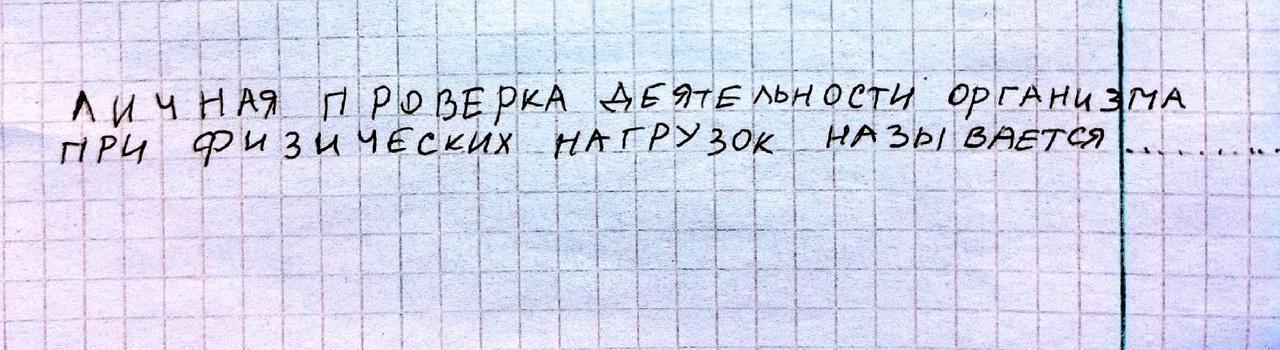 ЛИЧНАЯ ПРОВЕРКА ДЕЯТЕЛЬНОСТИ ОРГАНИЗМА
ПРИ ФИЗИЧЕСКИХ НАГРУЗОК НАЗЫВАЕТСЯ..........